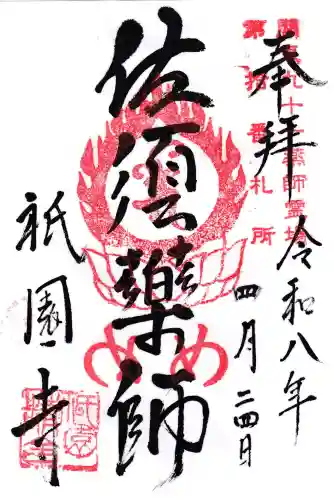 奉拝
令和八年
四月二四日
関東九十一薬師霊場
第拾番札所
佐須薬師
め め
祇園寺